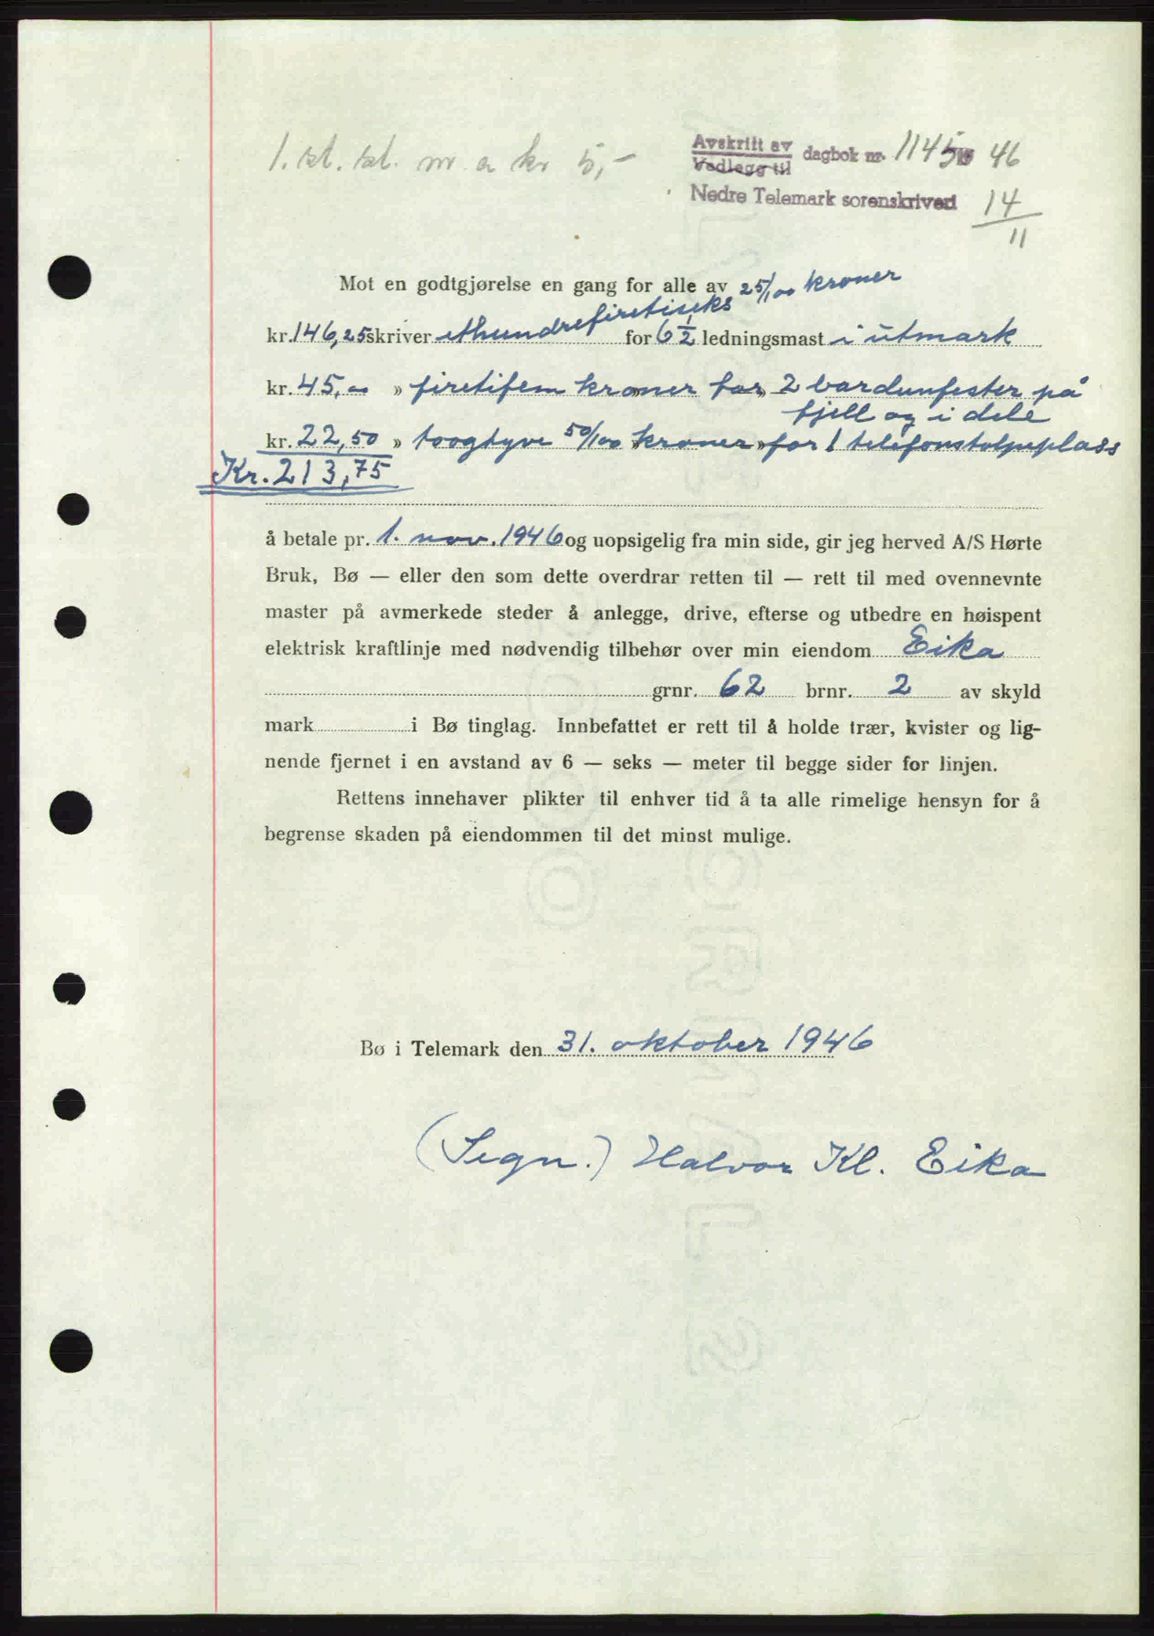 1. st. st. nr a kr 5,-
Avskrift av
Vedlegg til
dagbok nr. 1145 19 46
Nedre Telemark sorenskriveri 14/11
Mot en godtgjørelse en gang for alle av 25/100 kroner
kr. 146,25 skriver ethundrefiretiseks for 6 1/2 ledningsmast i utmark
kr. 45,00 » firetifem kroner for 2 bardunfester på
fjell og i dele
kr. 22,50 » toogtyve 50/100 kroner » for 1 telefonstolpeplass
Kr. 213,75
å betale pr. 1. nov. 1946 og uopsigelig fra min side, gir jeg herved A/S Hørte
Bruk, Bø — eller den som dette overdrar retten til — rett til med ovennevnte
master på avmerkede steder å anlegge, drive, efterse og utbedre en høispent
elektrisk kraftlinje med nødvendig tilbehør over min eiendom Eika
grnr. 62 brnr. 2 av skyld
mark i Bø tinglag. Innbefattet er rett til å holde trær, kvister og lig-
nende fjernet i en avstand av 6 — seks — meter til begge sider for linjen.
Rettens innehaver plikter til enhver tid å ta alle rimelige hensyn for å
begrense skaden på eiendommen til det minst mulige.
Bø i Telemark den 31. oktober 1946
(Segn.) Halvor Kl. Eika